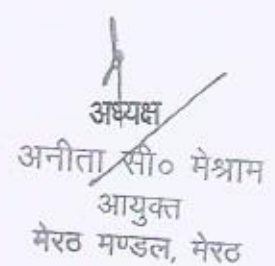 अध्यक्ष
अनीता सी० मेश्राम
आयुक्त
मेरठ मण्डल, मेरठ